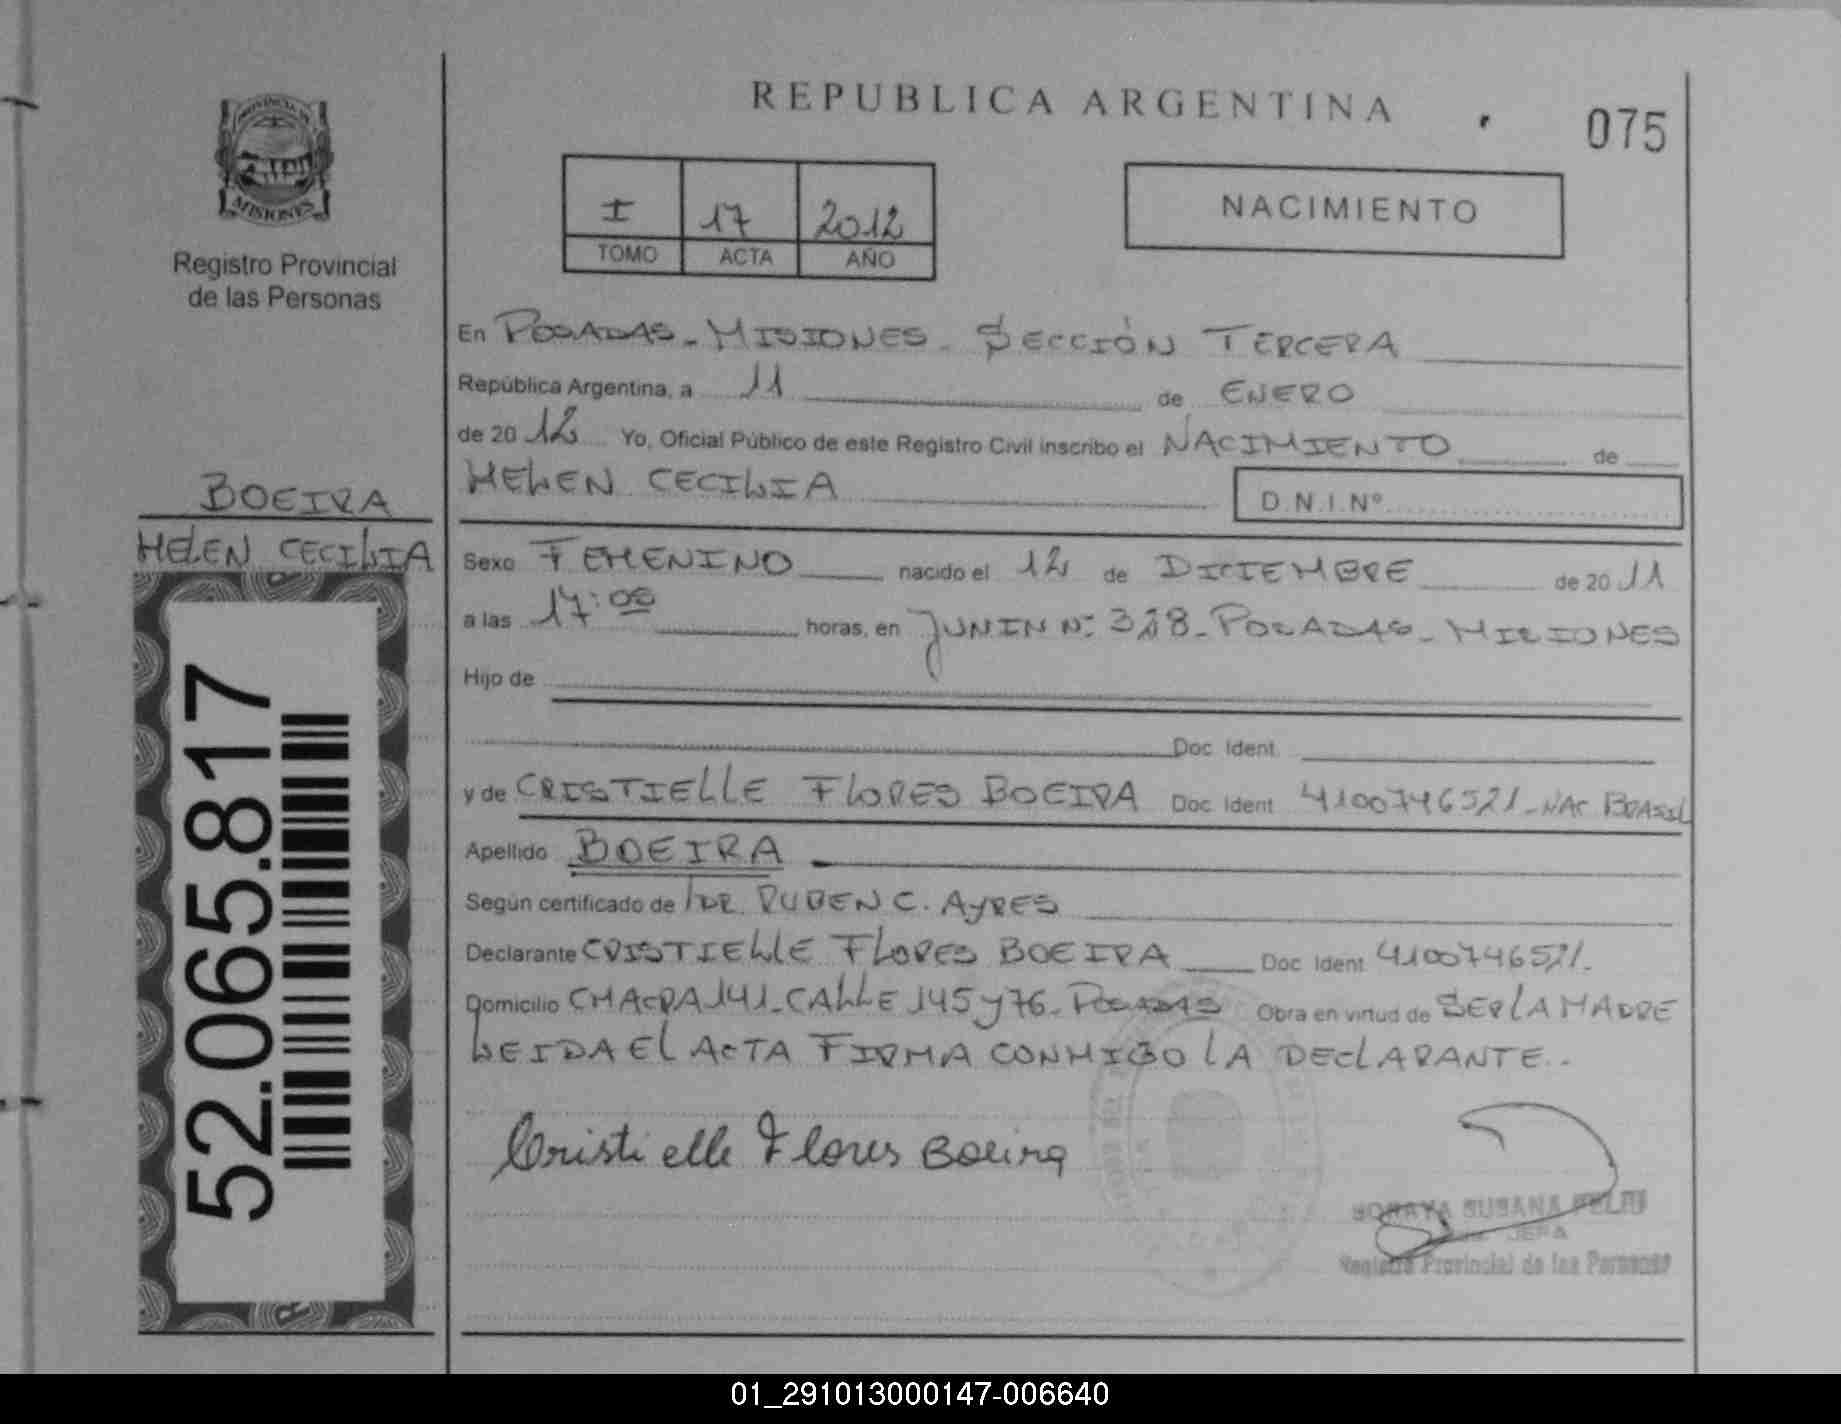 REPUBLICA ARGENTINA
075
PROVINCIA DE
MISIONES
Registro Provincial
de las Personas
I 17 2012
TOMO ACTA AÑO
NACIMIENTO
En POSADAS - MISIONES - SECCIÓN TERCERA
República Argentina, a 11 de ENERO
de 20 12 Yo, Oficial Público de este Registro Civil inscribo el NACIMIENTO de
HELEN CECILIA D.N.I.Nº
BOEIRA
HELEN CECILIA
52.065.817
Sexo FEMENINO nacido el 12 de DICIEMBRE de 20 11
a las 17:00 horas, en JUNIN Nº 328 - POSADAS - MISIONES
Hijo de
Doc. Ident.
y de CRISTIELLE FLORES BOEIRA Doc. Ident. 4100746521 - NAC BRASIL
Apellido BOEIRA
Según certificado de DR. RUBEN C. AYRES
Declarante CRISTIELLE FLORES BOEIRA Doc. Ident. 4100746521.
Domicilio CHACRA 141 - CALLE 145 y 76 - POSADAS Obra en virtud de SER LA MADRE
LEIDA EL ACTA FIRMA CONMIGO LA DECLARANTE..
Cristielle Flores Boeira
SORAYA SUSANA FELIU
JEFA
Registro Provincial de las Personas
01_291013000147-006640